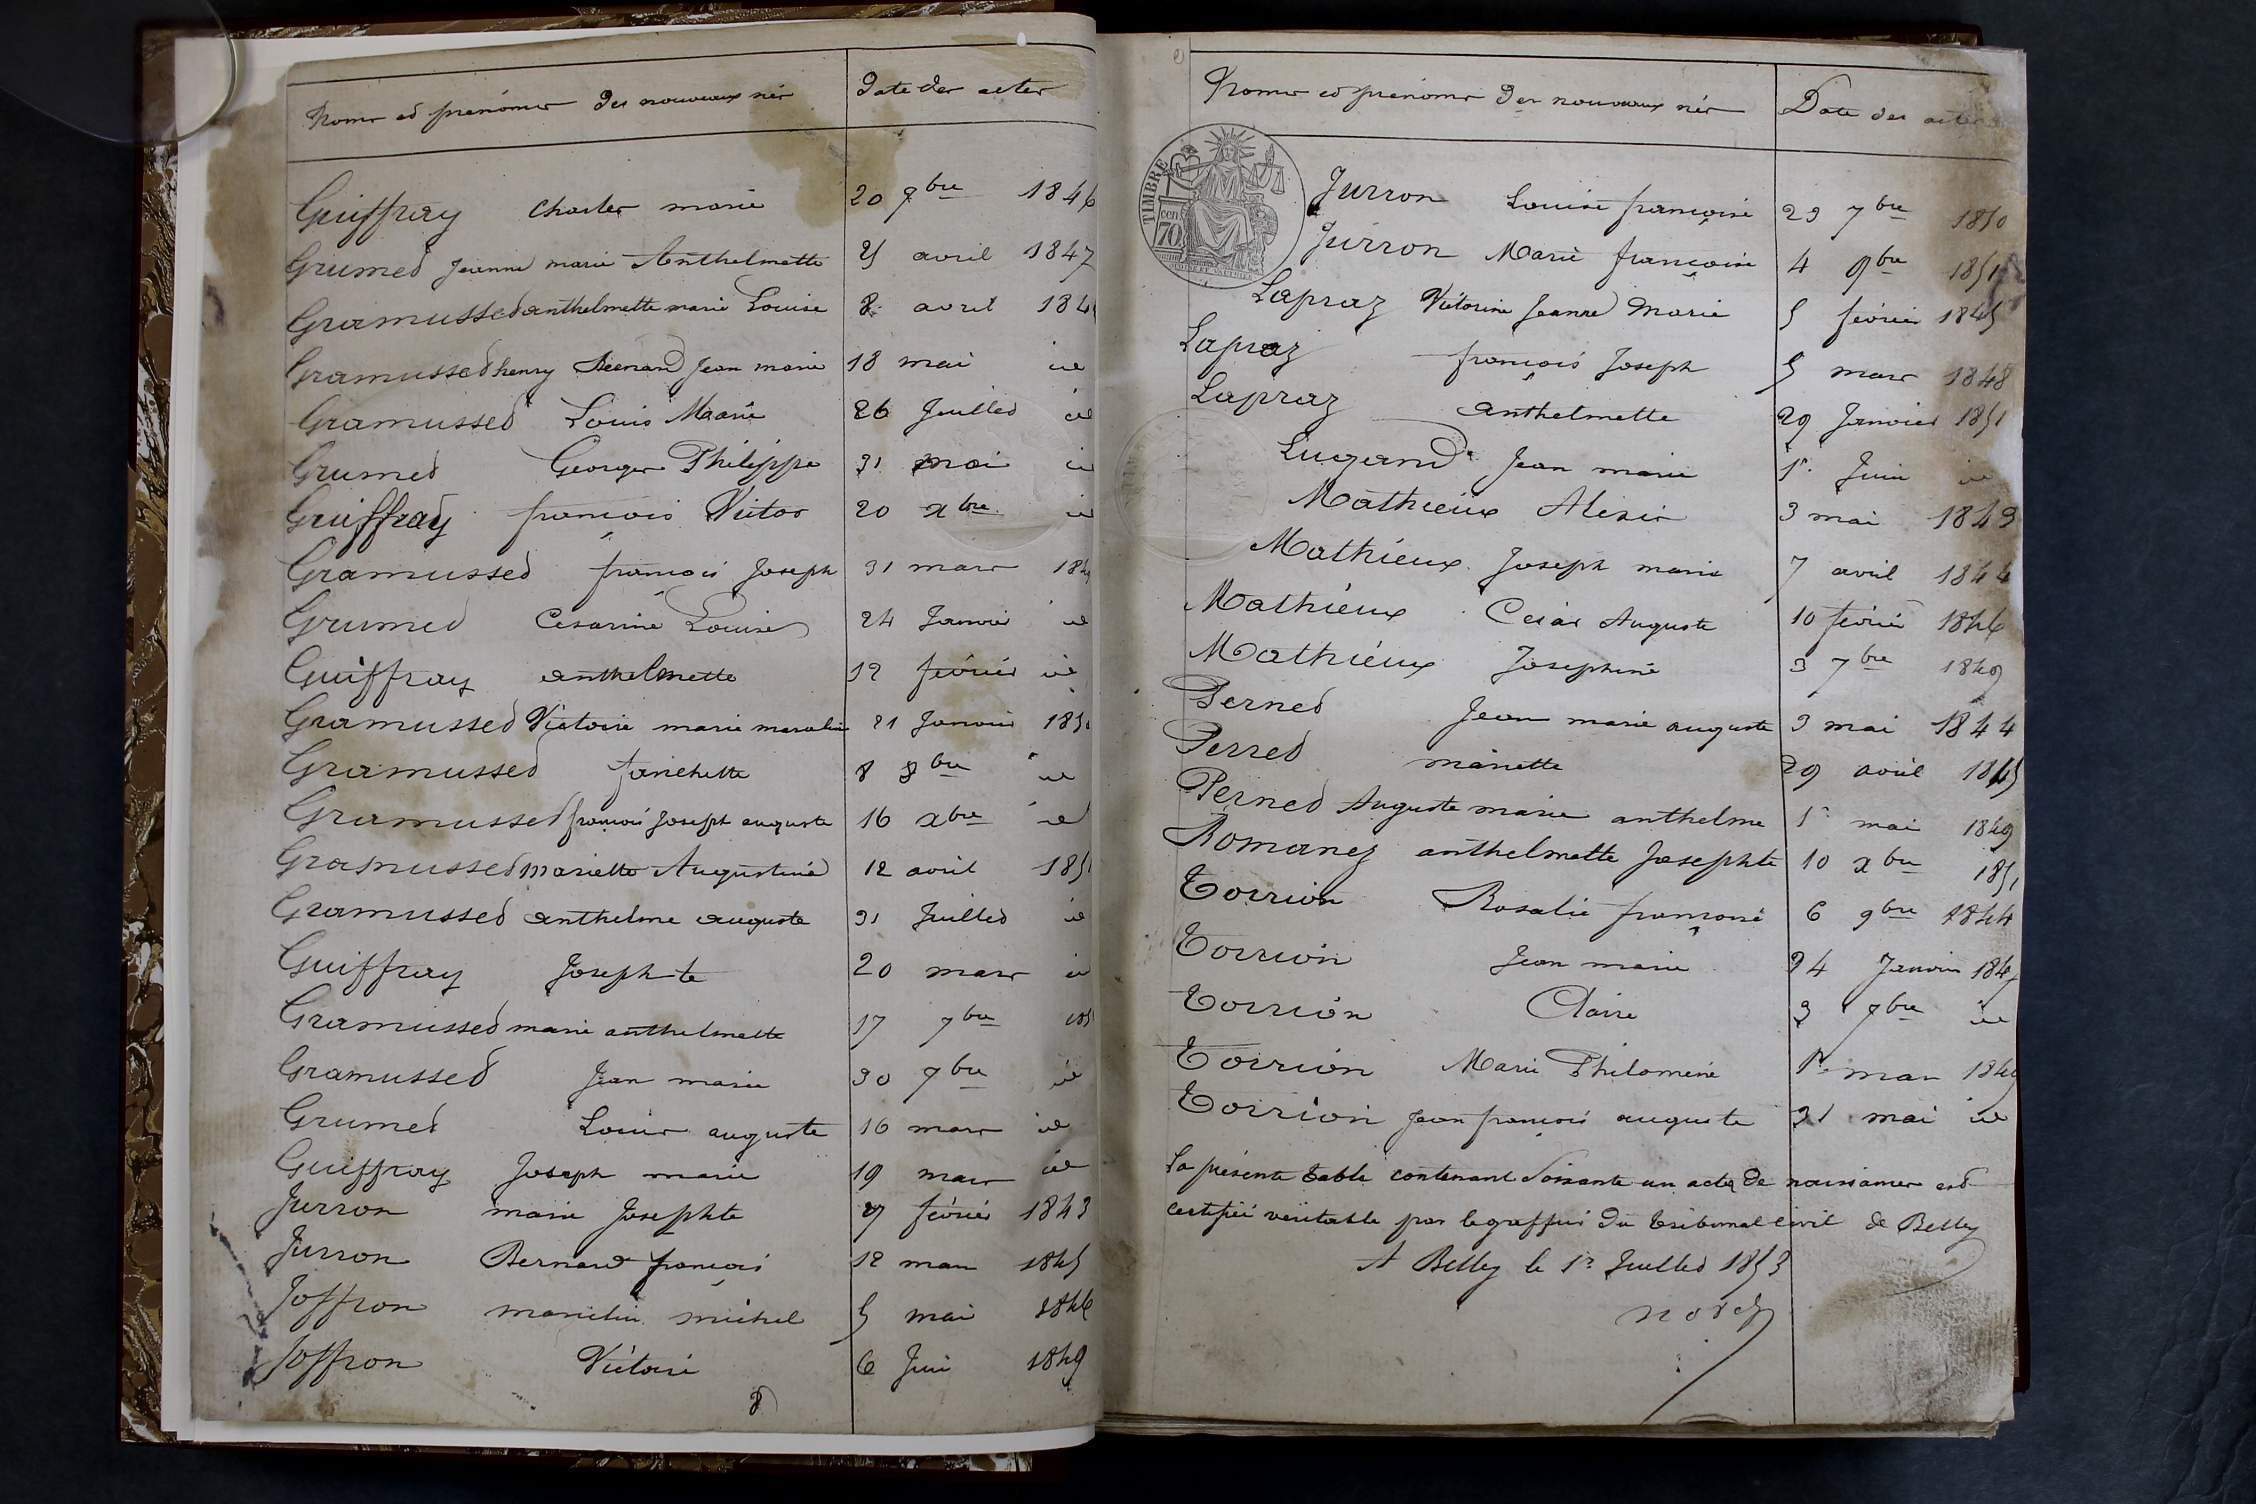 Noms et prénoms des nouveaux nés Date des actes
Guiffray Charles marie 20 9bre 1846
Grumed Jeanne marie Anthelmette 25 avril 1847
Gramussed anthelmette marie Louise 8 avril 184
Gramussed henry Bernard Jean marie 18 mai id
Gramussed Louis Marie 26 Juilled id
Grumed Georges Philippe 31 mai id
Guiffray françois Victor 20 xbre id
Gramussed françois Joseph 31 mars 184
Grumed Cesarine Louise 24 Janvier id
Guiffray anthelmette 12 février id
Gramussed Victoire marie 21 Janvier 185
Gramussed fanchette 8 8bre id
Gramussed françois Joseph auguste 16 xbre id
Gramussed Mariette Augustine 12 avril 185
Gramussed anthelme auguste 31 Juilled id
Guiffray Josephte 20 mars id
Gramussed marie anthelmette 17 7bre 185
Gramussed Jean marie 30 9bre id
Grumed Louis auguste 16 mars id
Guiffray Joseph marie 19 mars id
Jurron marie Josephte 27 février 1843
Jurron Bernard françois 12 mars 1845
Joffron marie michel 5 mai 1846
Joffron Victoire 6 Juin 1849
Noms et prénoms des nouveaux nés Date des actes
TIMBRE
70 cen
Jurron Louise françoise 29 7bre 1850
Jurron Marie françoise 4 9bre 1851
Lapraz Victorine Jeanne Marie 5 février 1845
Lapraz françois Joseph 5 mars 1848
Lapraz anthelmette 29 Janvier 1851
Lugand Jean marie 1r Juin id
Mathieux Alexis 3 mai 1843
Mathieux Joseph marie 7 avril 1844
Mathieux Cesar Auguste 10 février 1846
Mathieux Josephine 3 7bre 1849
Perned Jean marie auguste 3 mai 1844
Perred mariette 29 avril 1845
Perned Auguste marie anthelme 1r mai 1849
Romanez anthelmette Josephte 10 xbre 1851
Torrion Rosalie françoise 6 9bre 1844
Torrion Jean marie 24 Janvier 1847
Torrion Claire 3 9bre id
Torrion Marie Philomène 1r mars 1849
Torrion Jean françois auguste 31 mai id
La présente table contenant Soixante un actes de naissances est
certifiée véritable par le greffier du tribunal civil de Belley
A Belley le 1r Juilled 1853